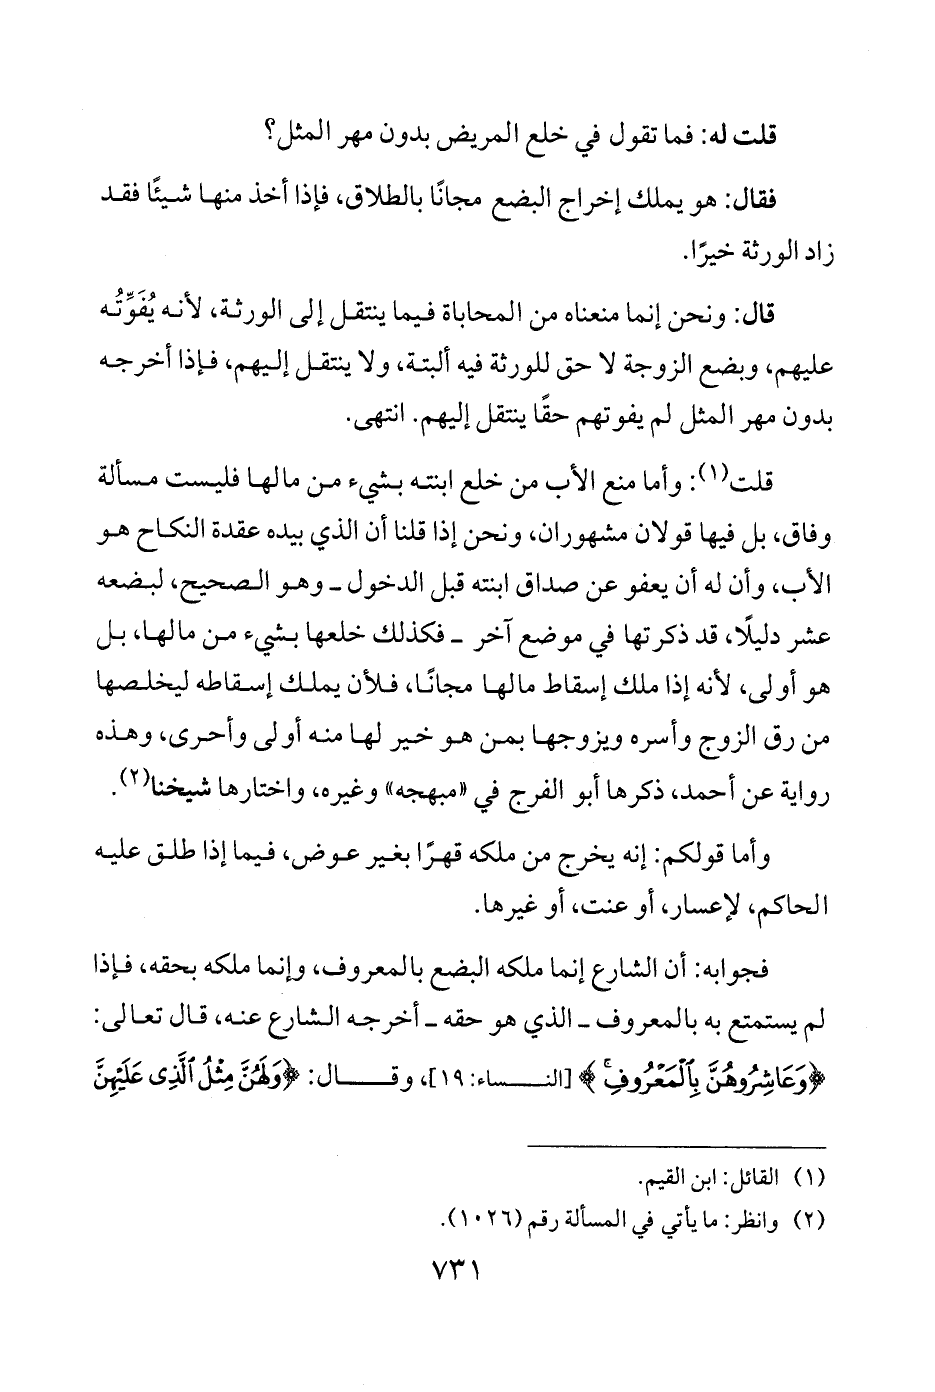 قلت له: فما تقول في خلع المريض بدون مهر المثل؟
فقال: هو يملك إخراج البضع مجانًا بالطلاق، فإذا أخذ منها شيئًا فقد
زاد الورثة خيرًا.
قال: ونحن إنما منعناه من المحاباة فيما ينتقل إلى الورثة، لأنه يُفَوِّتُه
عليهم، وبضع الزوجة لا حق للورثة فيه ألبتة، ولا ينتقل إليهم، فإذا أخرجه
بدون مهر المثل لم يفوتهم حقًا ينتقل إليهم. انتهى.
قلت(١): وأما منع الأب من خلع ابنته بشيء من مالها فليست مسألة
وفاق، بل فيها قولان مشهوران، ونحن إذا قلنا أن الذي بيده عقدة النكاح هو
الأب، وأن له أن يعفو عن صداق ابنته قبل الدخول ـ وهو الصحيح، لبضعه
عشر دليلًا، قد ذكرتها في موضع آخر ـ فكذلك خلعها بشيء من مالها، بل
هو أولى، لأنه إذا ملك إسقاط مالها مجانًا، فلأن يملك إسقاطه ليخلصها
من رق الزوج وأسره ويزوجها بمن هو خير لها منه أولى وأحرى، وهذه
رواية عن أحمد، ذكرها أبو الفرج في «مبهجه» وغيره، واختارها شيخنا(٢).
وأما قولكم: إنه يخرج من ملكه قهرًا بغير عوض، فيما إذا طلق عليه
الحاكم، لإعسار، أو عنت، أو غيرها.
فجوابه: أن الشارع إنما ملكه البضع بالمعروف، وإنما ملكه بحقه، فإذا
لم يستمتع به بالمعروف ـ الذي هو حقه ـ أخرجه الشارع عنه، قال تعالى:
﴿وَعَاشِرُوهُنَّ بِٱلْمَعْرُوفِ ۚ﴾ [النساء: ١٩]، وقال: ﴿وَلَهُنَّ مِثْلُ ٱلَّذِى عَلَيْهِنَّ
(١) القائل: ابن القيم.
(٢) وانظر: ما يأتي في المسألة رقم (١٠٢٦).
٧٣١